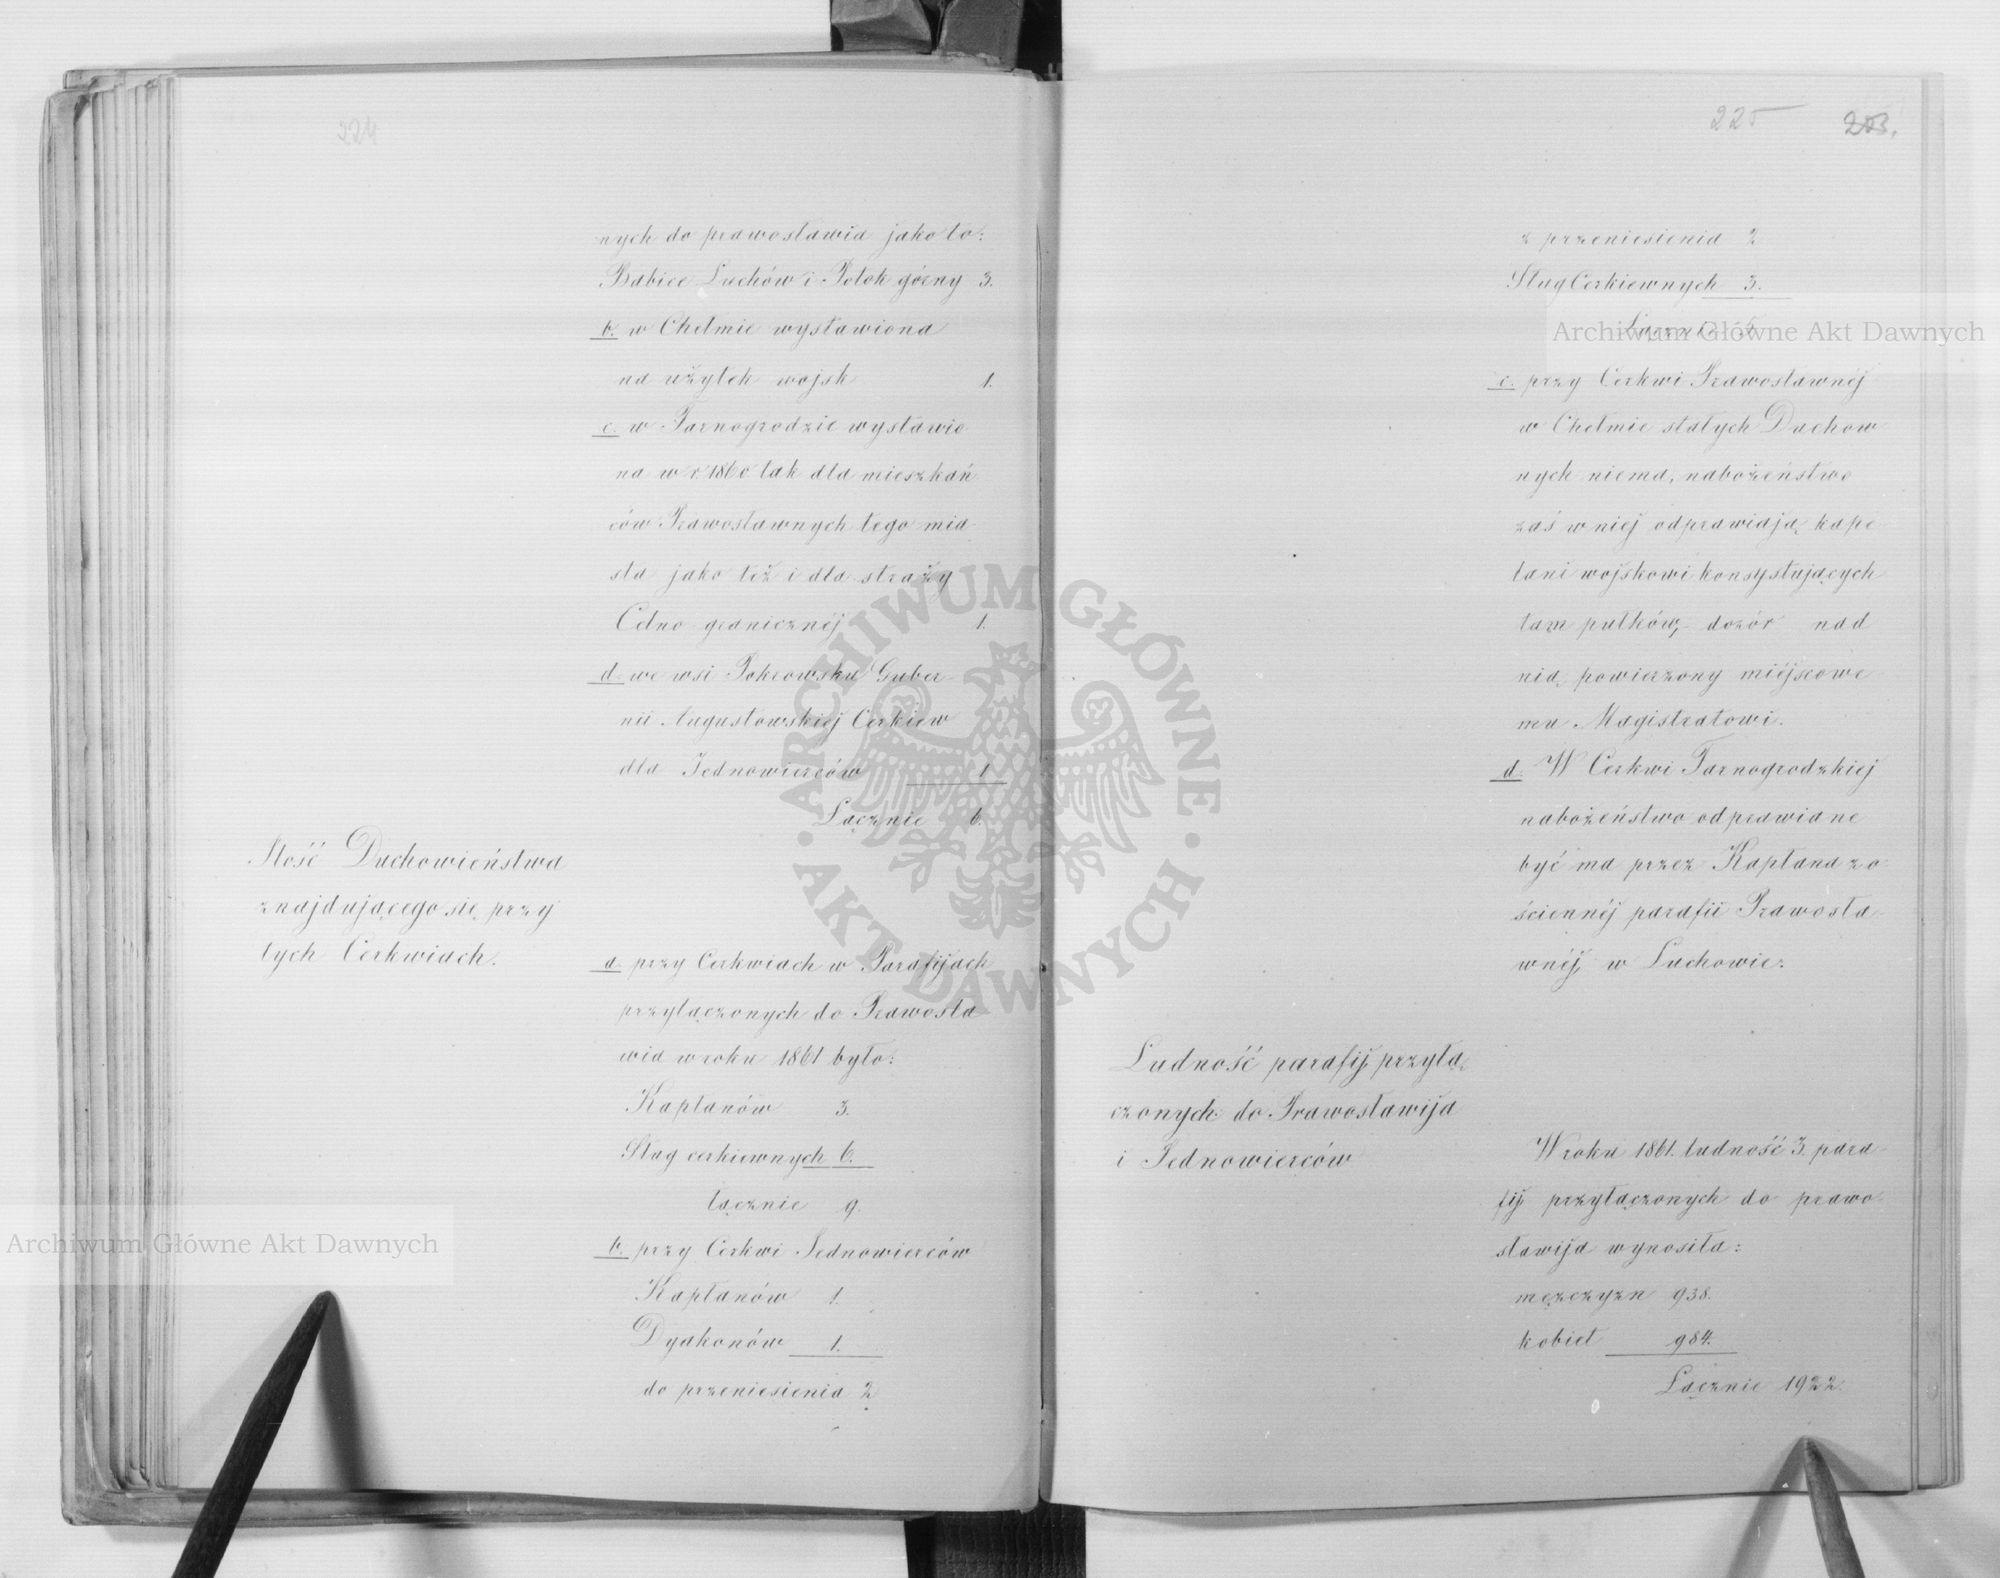 224
nych do prawosławia jako to:
Babice Luchów i Potok górny 3.
b. w Chełmie wystawiona
na użytek wojsk 1.
c. w Tarnogrodzie wystawio
na w r. 1860 tak dla mieszkań
ców Prawosławnych tego mia-
sta jako też i dla straży
Celno granicznéj 1.
d. we wsi Pokrowsku Guber-
nii Augustowskiej Cerkiew
dla Jednowierców 1
Łącznie 6.
Ilość Duchowieństwa
znajdującego się przy
tych Cerkwiach.
a. przy Cerkwiach w Parafijach
przyłączonych do Prawosła
wia w roku 1861 było:
Kapłanów 3.
Sług cerkiewnych 6.
łącznie 9.
b. przy Cerkwi Jednowierców
Kapłanów 1.
Dyakonów 1.
do przeniesienia 2
225
z przeniesienia 2
Sług Cerkiewnych 3.
Łącznie 5
c. przy Cerkwi Prawosławnéj
w Chełmie stałych Duchow
nych niema, nabożeństwo
zaś w niej odprawiają kape
lani wojskowi konsystujących
tam pułków, dozór nad
nią powierzony miéjscowe
mu Magistratowi.
d. W Cerkwi Tarnogrodzkiej
nabożeństwo odprawiane
być ma przez Kapłana zo
ściennéj parafii Prawosła
wnéj w Luchowie.
Ludność parafij przyłą
czonych do Prawosławija
i Jednowierców
W roku 1861. ludność 3. para
fij przyłączonych do prawo
sławija wynosiła:
męzczyzn 938.
kobiet 984.
Łącznie 1922.
Archiwum Główne Akt Dawnych
Archiwum Główne Akt Dawnych
ARCHIWUM GŁÓWNE
AKT DAWNYCH